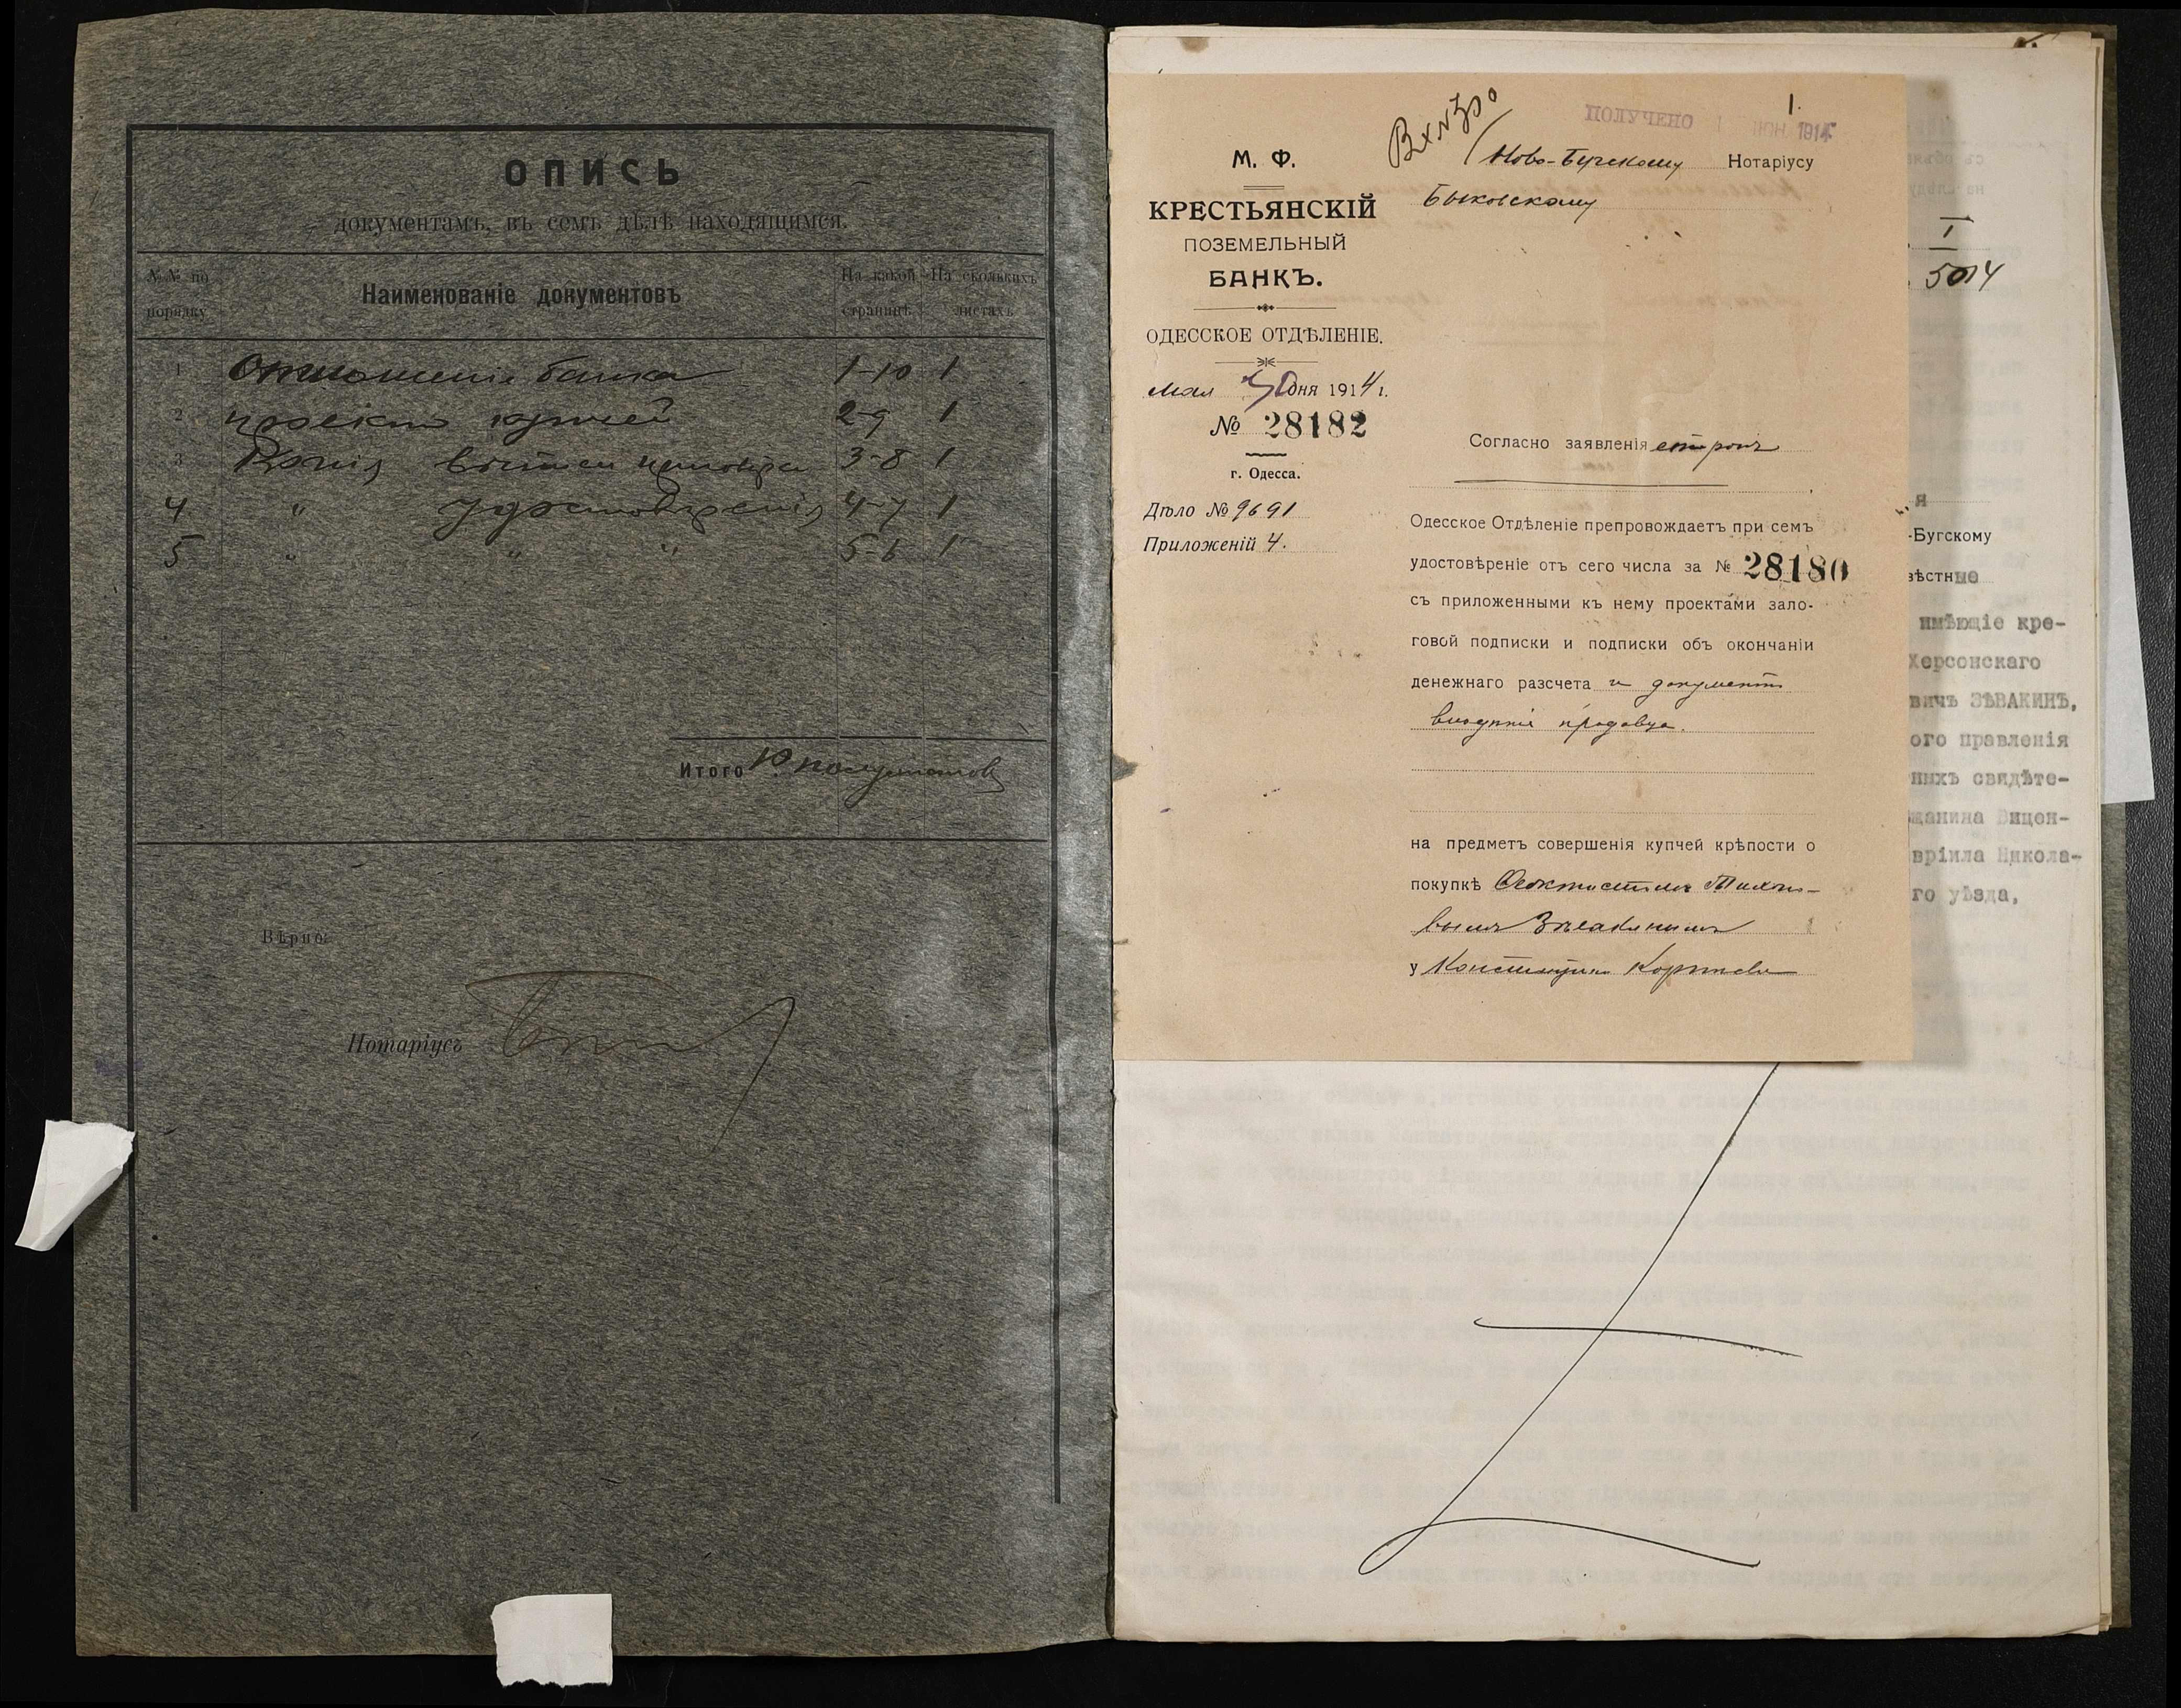 ОПИСЬ
документамъ, въ семъ дѣлѣ находящимся.
№№ по порядку
Наименованіе документовъ
На какой страницѣ
На сколькихъ листахъ
1 Отношеніе банка 1-10 1
2 проектъ купчей 2-9 1
3 Копія 3-8 1
4 " удостовѣренія 4-7 1
5 " " " 5-6 1
Итого 10 полулистовъ
Вѣрно:
Нотаріусъ
Вх №
ПОЛУЧЕНО 1 ІЮН 1914
1.
М. Ф.
КРЕСТЬЯНСКІЙ
ПОЗЕМЕЛЬНЫЙ
БАНКЪ.
ОДЕССКОЕ ОТДѢЛЕНІЕ.
Мая 30 дня 1914 г.
№ 28182
г. Одесса.
Дѣло № 9691
Приложеній 4.
Ново-Бугскому Нотаріусу
Быковскому
Согласно заявленія сторонъ
Одесское Отдѣленіе препровождаетъ при семъ
удостовѣреніе отъ сего числа за № 28180
съ приложенными къ нему проектами зало-
говой подписки и подписки объ окончаніи
денежнаго разсчета и документъ
продавца.
на предметъ совершенія купчей крѣпости о
покупкѣ Феоктистомъ Тихоно-
вымъ Зѣвакинымъ
у
I
5014
я
-Бугскому
вѣстные
имѣющіе кре-
Херсонскаго
вичъ ЗѢВАКИНЪ,
ого правленія
ныхъ свидѣте-
щанина Вицен-
вріила Никола-
го уѣзда,